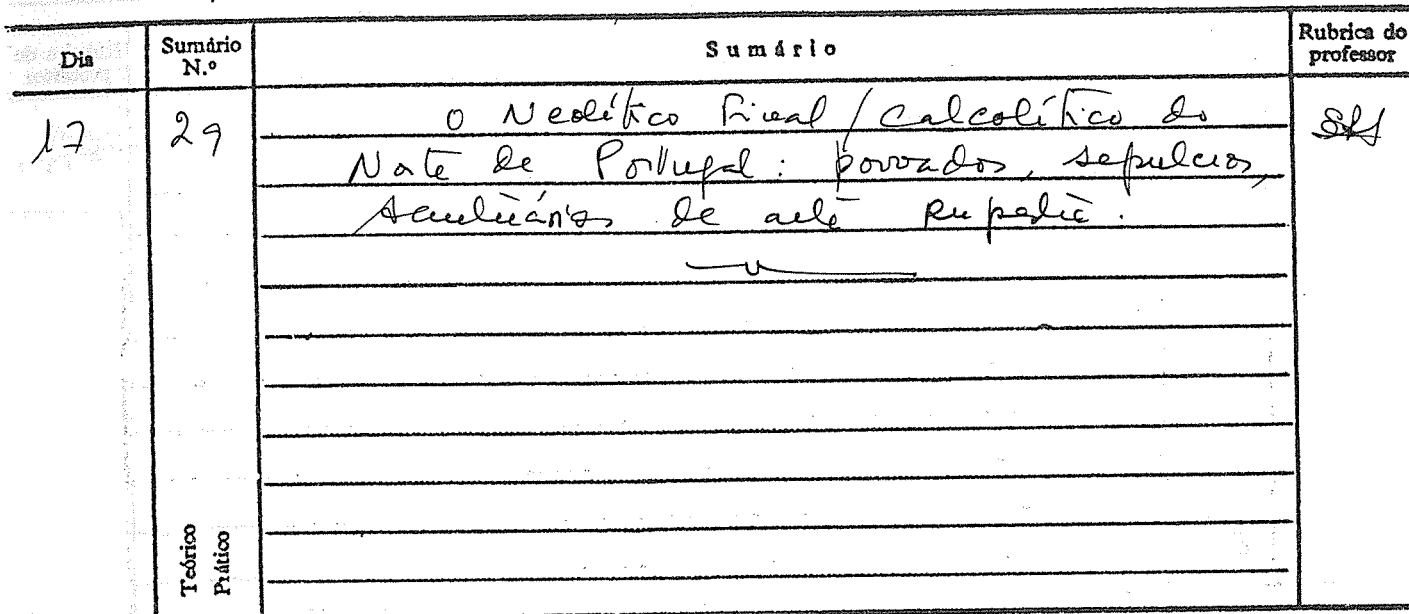 Dia
Sumário N.º
Sumário
Rubrica do professor
17
29
O Neolítico Final / Calcolítico do
Norte de Portugal: povoados, sepulcros,
santuários de arte rupestre.
Teórico
Prático